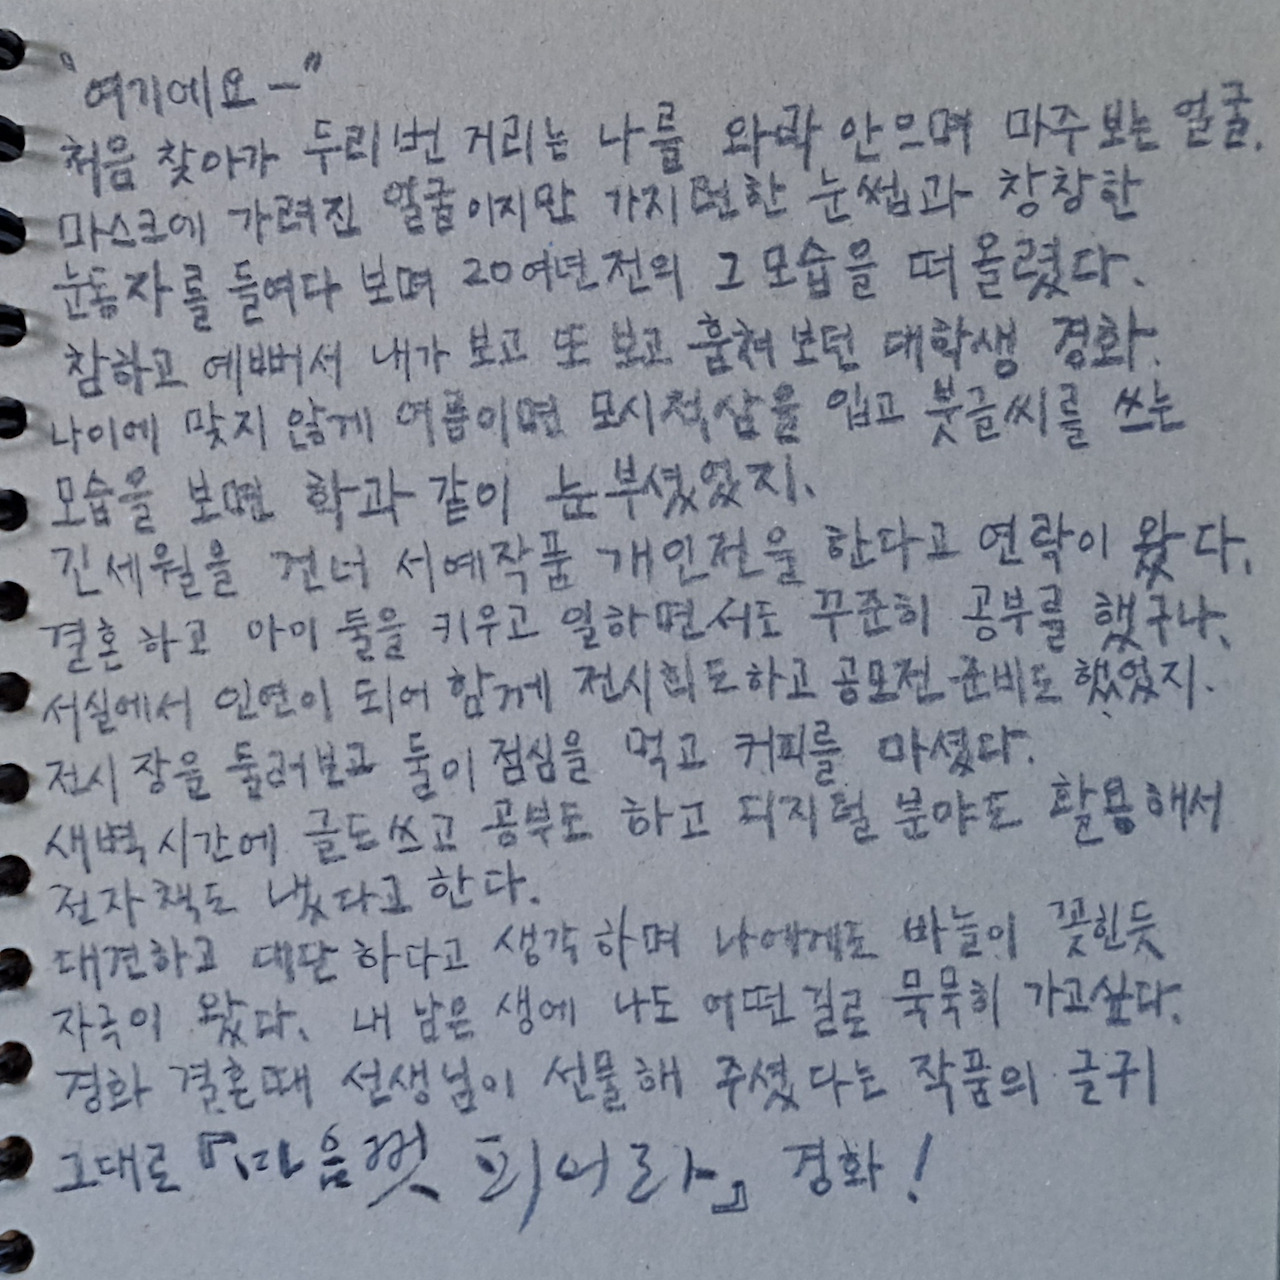 "여기에요 -"
처음 찾아가 두리번 거리는 나를 와락 안으며 마주보는 얼굴.
마스크에 가려진 얼굴이지만 가지런한 눈썹과 창창한
눈동자를 들여다 보며 20여년전의 그 모습을 떠올렸다.
참하고 예뻐서 내가 보고 또 보고 훔쳐보던 대학생 경화.
나이에 맞지 않게 여름이면 모시적삼을 입고 붓글씨를 쓰는
모습을 보면 학과 같이 눈부셨었지.
긴세월을 건너 서예작품 개인전을 한다고 연락이 왔다.
결혼하고 아이 둘을 키우고 일하면서도 꾸준히 공부를 했구나.
서실에서 인연이 되어 함께 전시회도하고 공모전 준비도 했었지.
전시장을 둘러보고 둘이 점심을 먹고 커피를 마셨다.
새벽시간에 글도쓰고 공부도 하고 디지털 분야도 활용해서
전자책도 냈다고 한다.
대견하고 대단하다고 생각하며 나에게도 바늘이 꽂힌듯
자극이 왔다. 내 남은 생에 나도 어떤길로 묵묵히 가고싶다.
경화 결혼때 선생님이 선물해 주셨다는 작품의 글귀
그대로 『 피어라』 경화!